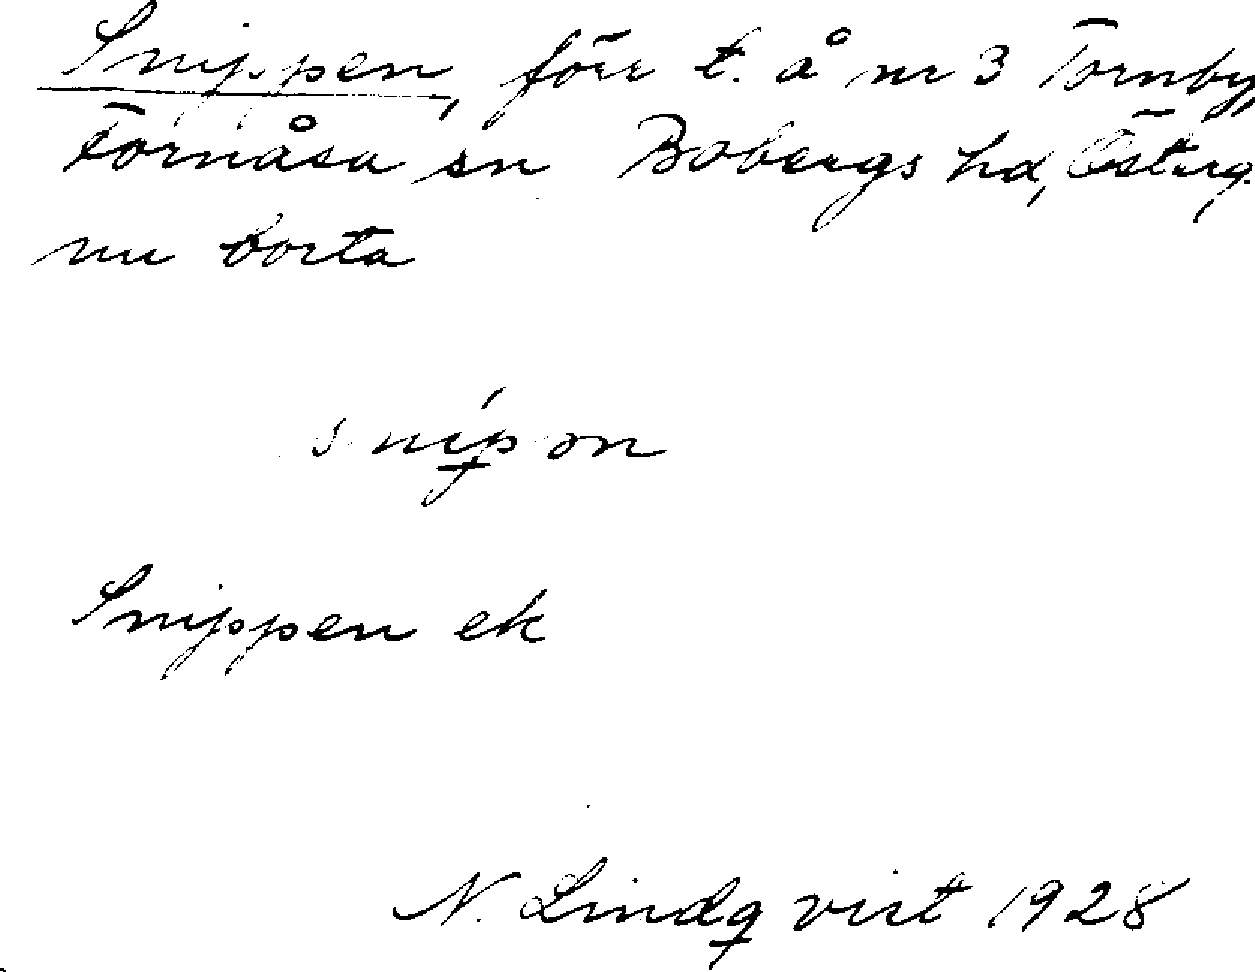 Snippen, förr t. å nr 3 Tornby,
Fornåsa sn Bobergs hd, Österg.
nu borta
snípon
Snippen ek
N. Lindqvist 1928